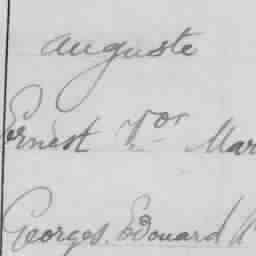 Auguste
Ernest Vor Mar
Georges. Edouard